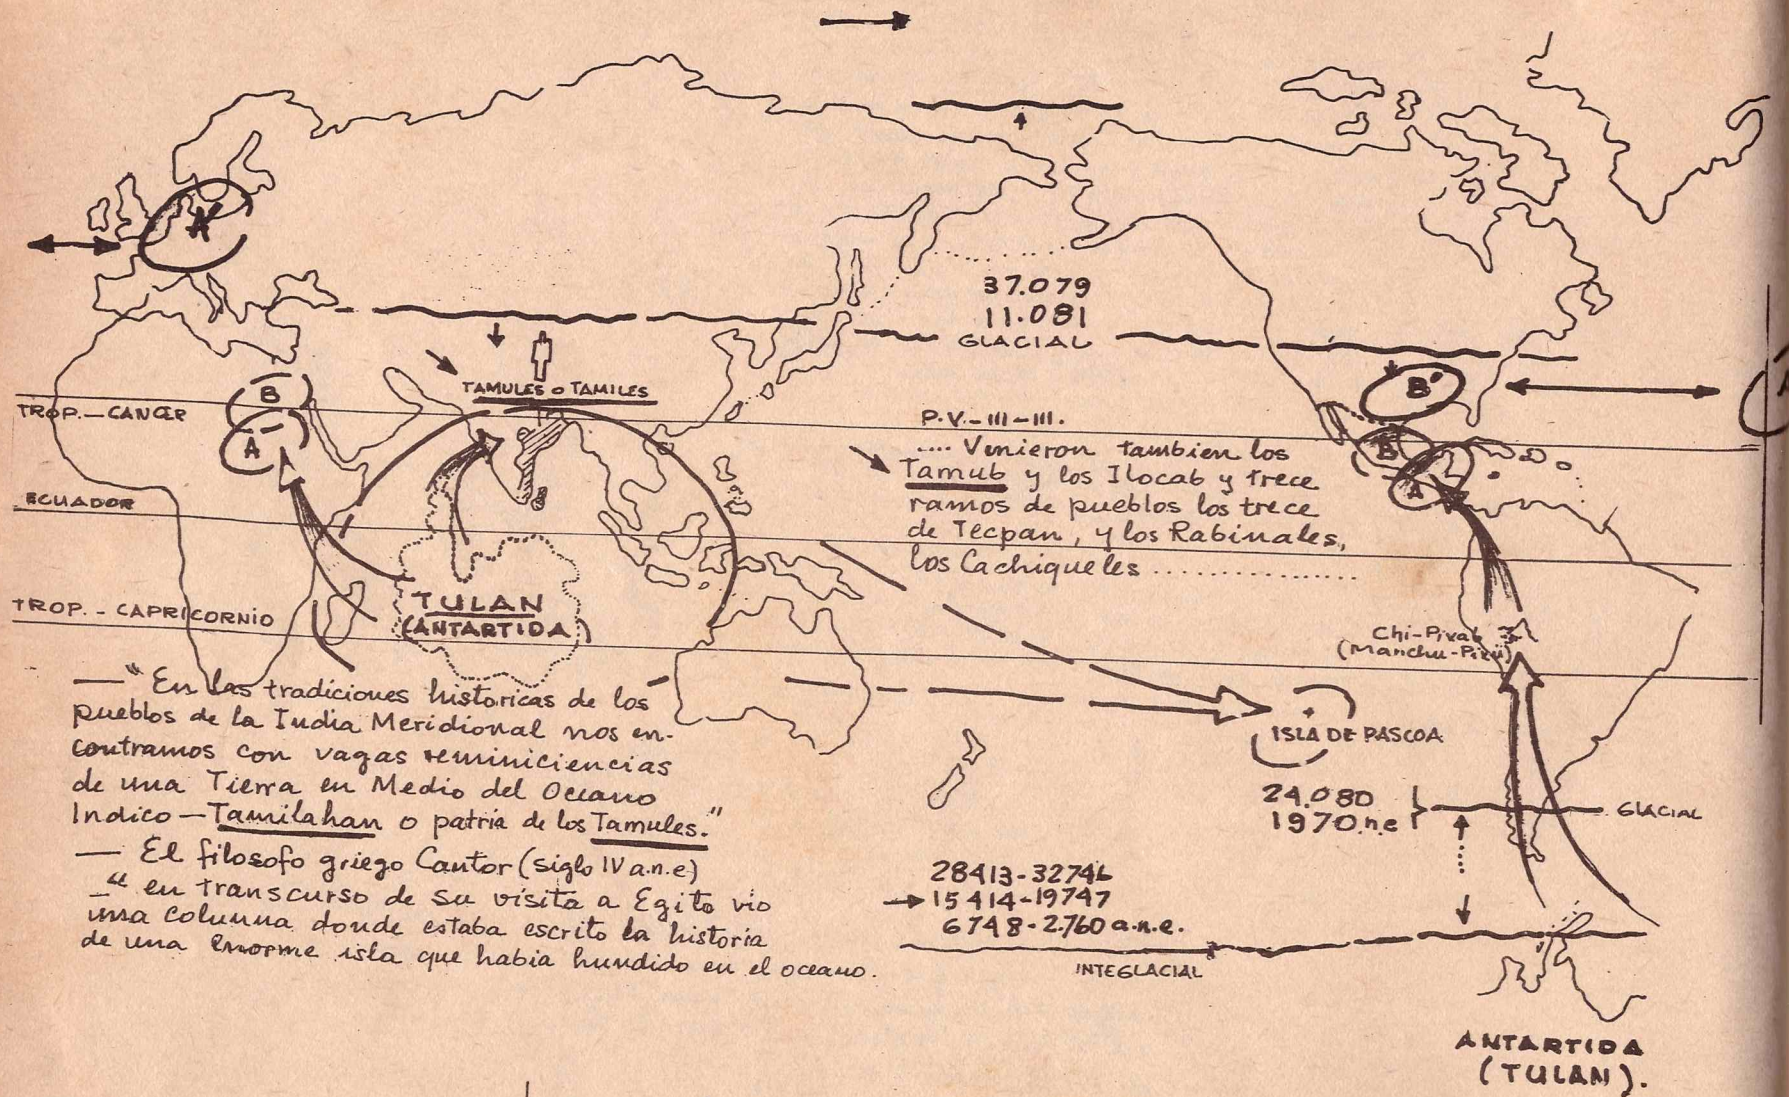 37.079
11.081
GLACIAL
TAMULES o TAMILES
A'
B
A
B'
B
A
TROP.-CANCER
ECUADOR
TROP. - CAPRICORNIO
P.V.-III-III.
.... Vinieron tambien los
Tamub y los Ilocab y trece
ramos de pueblos los trece
de Tecpan, y los Rabinales,
los Cachiqueles ...............
TULAN
(ANTARTIDA)
Chi-Pixab
(Manchu-Pizu)
ISLA DE PASCOA
— "En las tradiciones historicas de los
pueblos de la India Meridional nos en-
contramos con vagas reminiciencias
de una Tierra en Medio del Oceano
Indico — Tamilahan o patria de los Tamules."
— El filosofo griego Cantor (siglo IV a.n.e)
— "en transcurso de su visita a Egito vio
una columna donde estaba escrito la historia
de una enorme isla que habia hundido en el oceano.
24.080
1970 n.e
GLACIAL
28413-32746
15414-19747
6748-2.760 a.n.e.
INTEGLACIAL
ANTARTIDA
(TULAN).